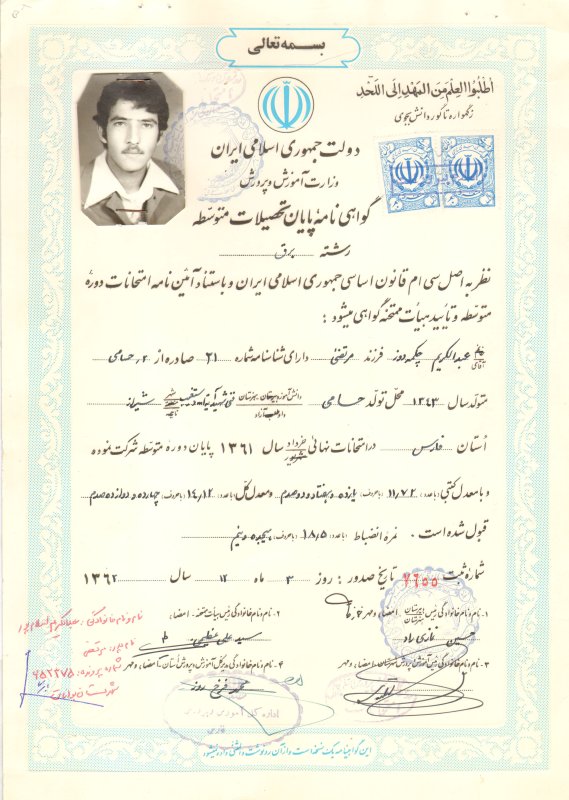 بسمه تعالی
اُطْلُبُوا العِلْمَ مِنَ المَهْدِ اِلَی اللَّحَد
زگهواره تا گور دانش بجوی
دولت جمهوری اسلامی ایران
وزارت آموزش و پرورش
گواهی نامهٔ پایان تحصیلات متوسّطه
رشته برق
نظر به اصل سی ام قانون اساسی جمهوری اسلامی ایران و باستناد آئین نامه امتحانات دورهٔ
متوسّطه و تأیید هیأت ممتحنه گواهی میشود :
عبدالکریم چکمه دوز فرزند مرتضی دارای شناسنامه شماره ۲۱ صادره از
متولّد سال ۱۳۴۳ محلّ تولّد فنی شهید آیة اله دستغیب شیراز
اُستان فارس در امتحانات نهائی خرداد شهریور سال ۱۳۶۱ پایان دورهٔ متوسّطه شرکت نموده
و با معدل کتبی (با عدد) ۱۱٫۷۲ (با حروف) یازده و هفتاد و دو صدم و معدل کل (با عدد) ۱۴٫۱۲ (با حروف) چهارده و دوازده صدم
قبول شده است . نمره انضباط (با عدد) ۱۸٫۵ (با حروف) هیجده و نیم
شماره ثبت ۷۶۵۵ تاریخ صدور : روز ۳ ماه ۱۲ سال ۱۳۶۲
۱- نام و نام خانوادگی رئیس دبیرستان هنرستان امضاء و مهر
۲- نام و نام خانوادگی رئیس هیأت ممتحنه - امضاء :
سید علی عظیمی
۳- نام و نام خانوادگی رئیس آموزش و پرورش شهرستان با امضاء و مهر
۴- نام و نام خانوادگی مدیر کل آموزش و پرورش استان با امضاء و مهر
نام و نام خانوادگی:
نام پدر: مرتضی
شماره پرونده: ۶۵۲۲۷۵
این گواهینامه یک نسخه است و از آن رونوشت و المثنی داده نمیشود